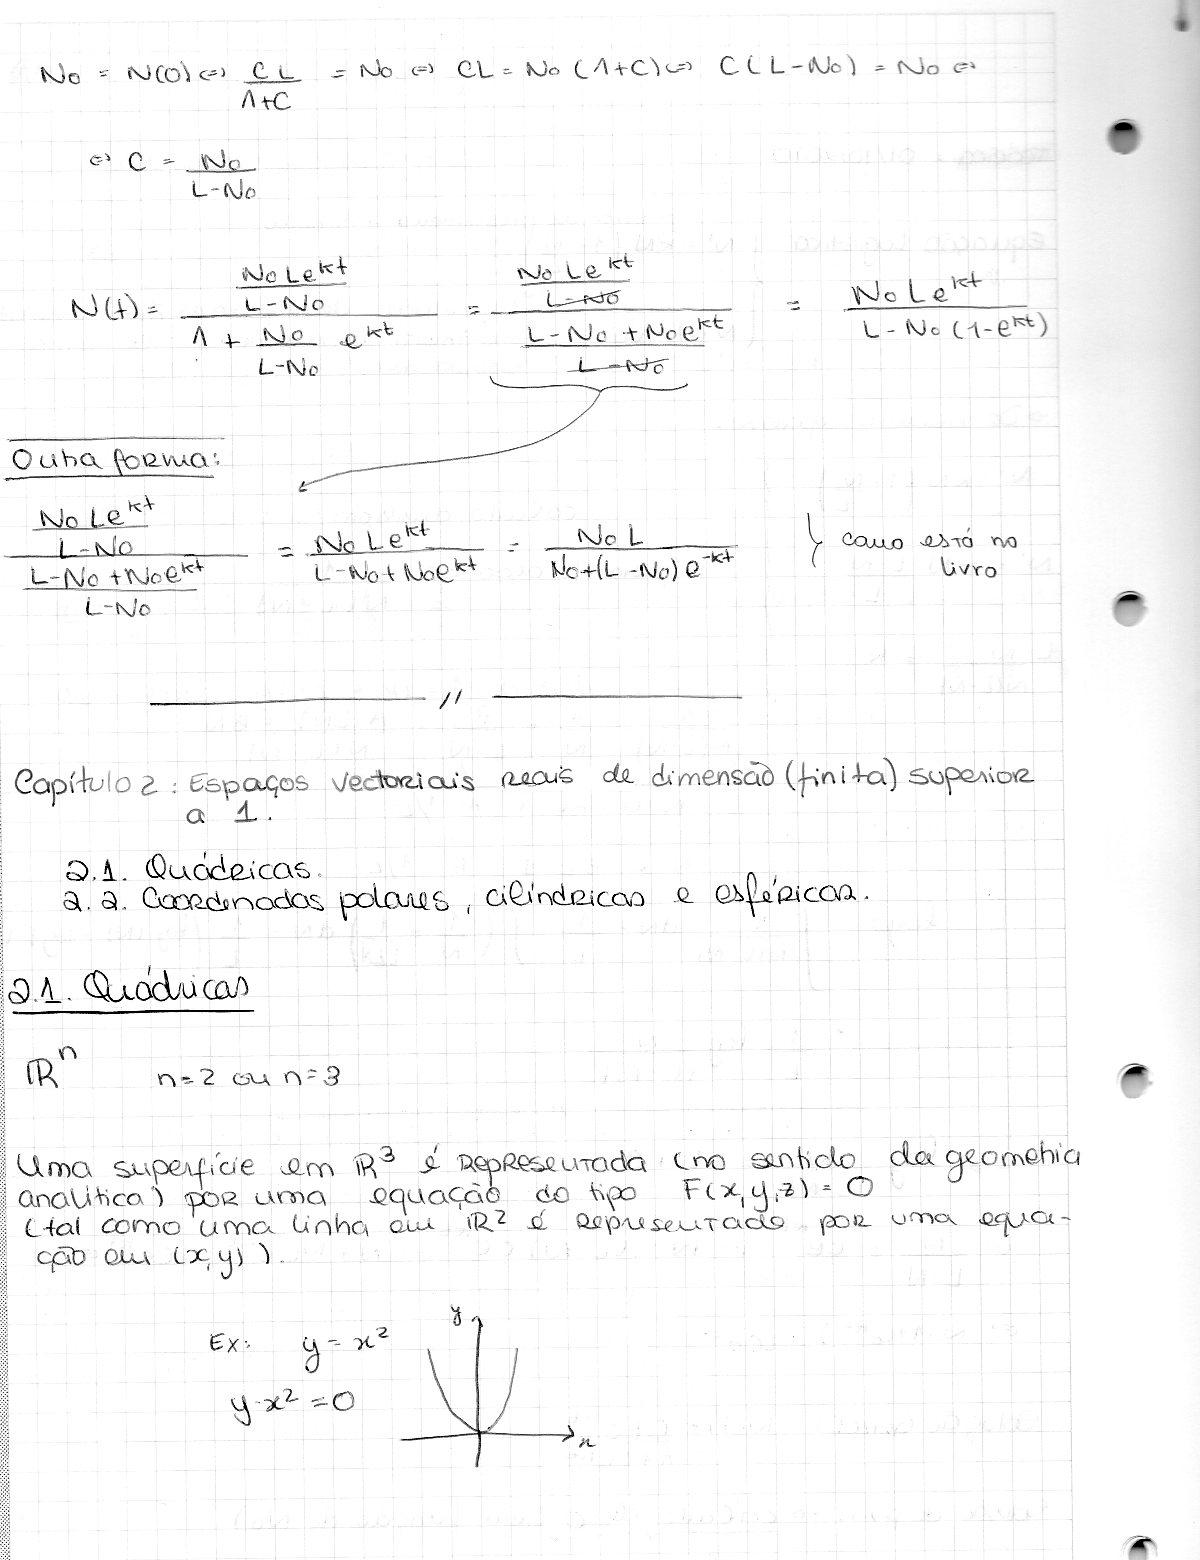 No = N(0) ⇔ CL/(1+C) = No ⇔ CL = No (1+C) ⇔ C(L-No) = No ⇔
⇔ C = No/(L-No)
N(t) = (No L e^kt/(L-No))/(1 + No/(L-No) e^kt) = (No L e^kt/(L-No))/((L-No+No e^kt)/(L-No)) = No L e^kt/(L-No(1-e^kt))
Outra forma:
(No L e^kt/(L-No))/((L-No+No e^kt)/(L-No)) = No L e^kt/(L-No+No e^kt) = No L/(No+(L-No)e^-kt) } como está no
livro
//
Capítulo 2: Espaços vectoriais reais de dimensão (finita) superior
a 1.
2.1. Quádricas.
2.2. Coordenadas polares, cilíndricas e esféricas.
2.1. Quádricas
ℝ^n n=2 ou n=3
Uma superfície em ℝ^3 é representada (no sentido da geometria
analítica) por uma equação do tipo F(x,y,z) = 0
(tal como uma linha em ℝ^2 é representada por uma equa-
ção em (x,y)).
y
Ex: y = x^2
y-x^2 = 0
x